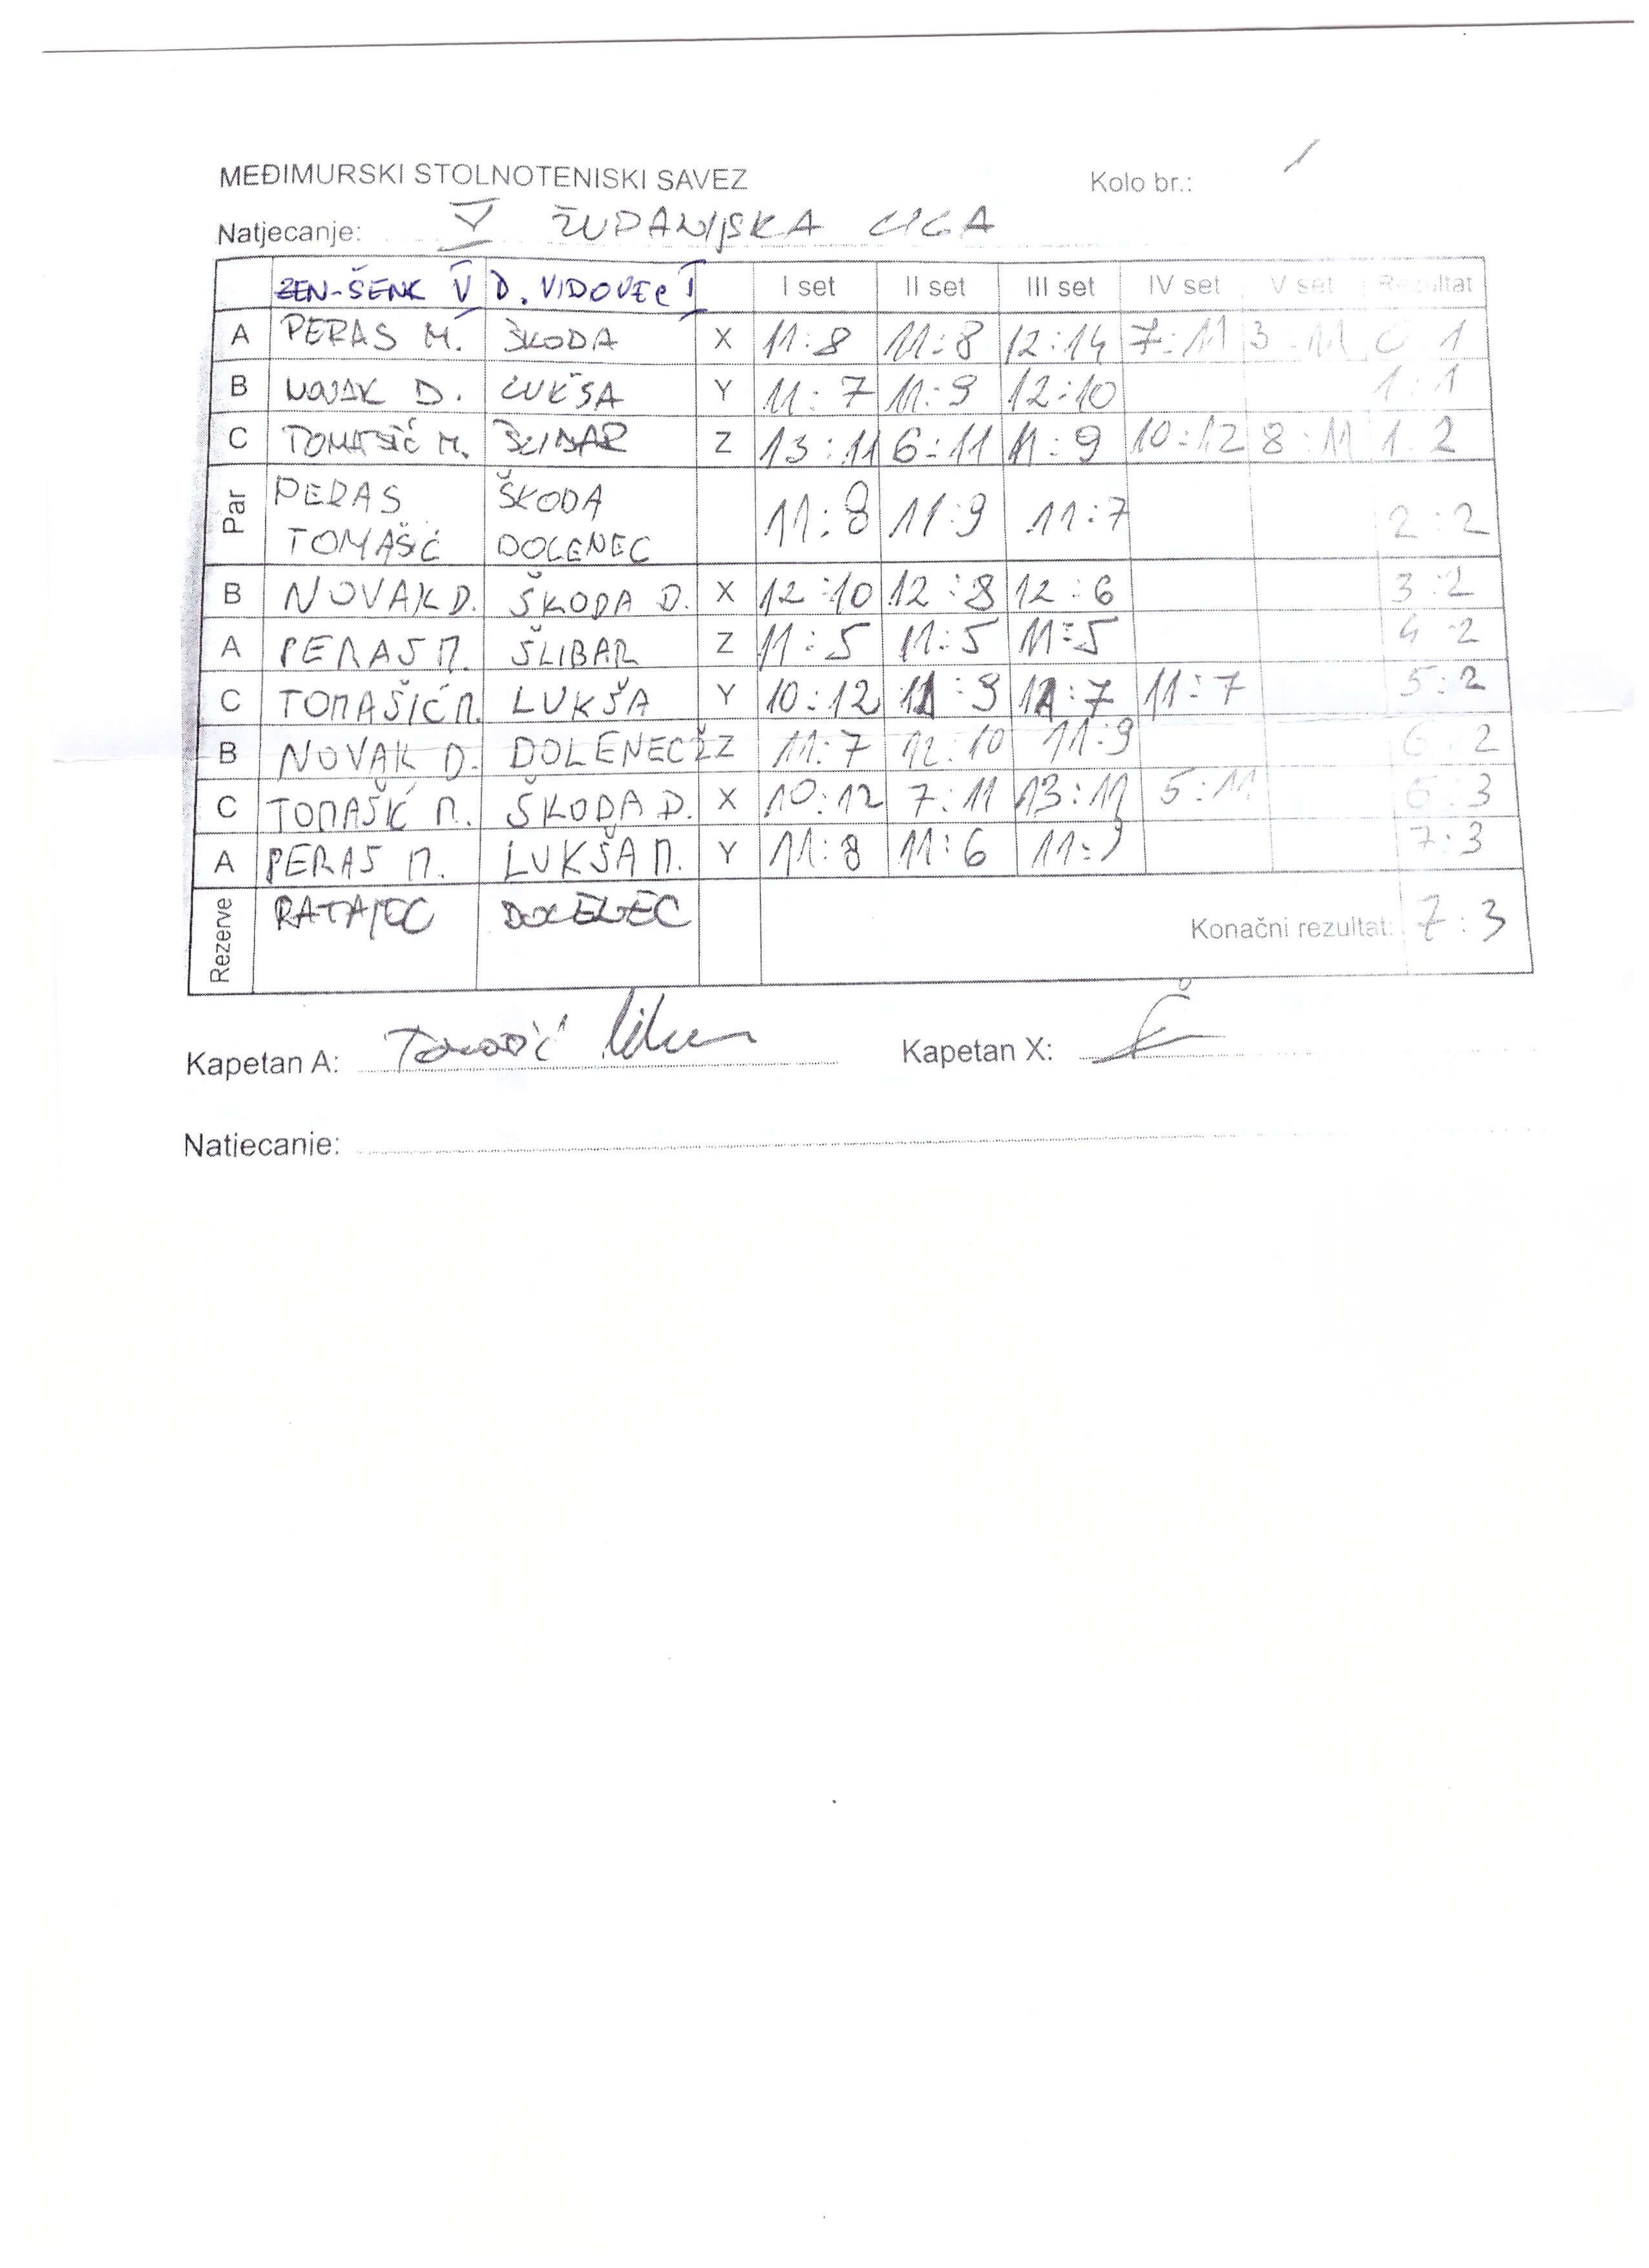 MEĐIMURSKI STOLNOTENISKI SAVEZ Kolo br.: 1
Natjecanje: V ŽUPANIJSKA LIGA
ZEN-ŠENK V D. VIDOVEC I I set II set III set IV set V set Rezultat
A PERAS M. ŠKODA X 11:8 11:8 12:14 7:11 3:11 0 1
B NOVAK D. LUKŠA Y 11:7 11:9 12:10 1:1
C TOMAŠIĆ M. ŠLIBAR Z 13:11 6:11 11:9 10:12 8:11 1:2
Par PERAS ŠKODA 11:8 11:9 11:7 2:2
TOMAŠIĆ DOLENEC
B NOVAK D. ŠKODA D. X 12:10 12:8 12:6 3:2
A PERAS M. ŠLIBAR Z 11:5 11:5 11:5 4:2
C TOMAŠIĆ M. LUKŠA Y 10:12 11:9 11:7 11:7 5:2
B NOVAK D. DOLENEC Ž Z 11:7 12:10 11:9 6:2
C TOMAŠIĆ M. ŠKODA D. X 10:12 7:11 13:11 5:11 6:3
A PERAS M. LUKŠA M. Y 11:8 11:6 11:9 7:3
Rezerve RATAJEC DOLENEC Konačni rezultat: 7:3
Kapetan A: Tomašić Kapetan X:
Natjecanje: